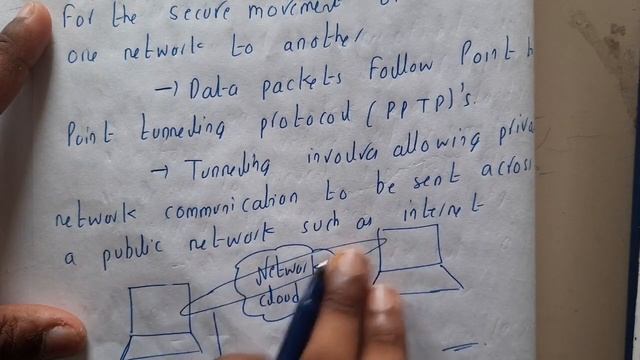 For the secure movement
one network to another
→ Data packets follow Point
Point tunneling protocol (PPTP)'s.
→ Tunneling involves allowing
network communication to be sent across
a public network such as internet
Network
cloud